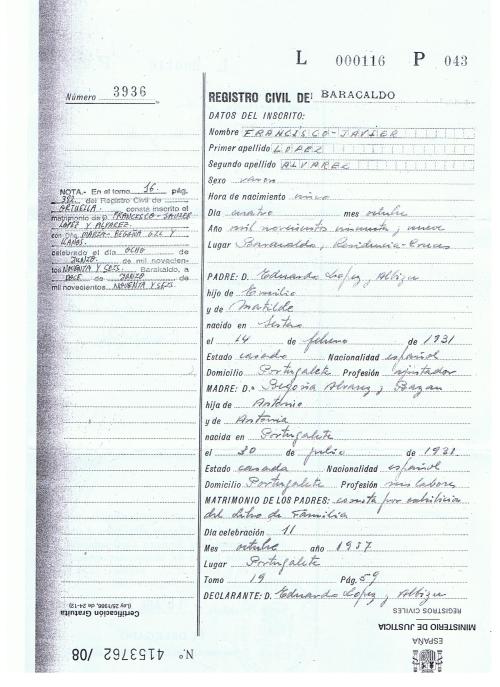 L 000116 P 043
Número 3936
REGISTRO CIVIL DE: BARACALDO
DATOS DEL INSCRITO:
Nombre FRANCISCO-JAVIER
Primer apellido LOPEZ
Segundo apellido ALVAREZ
Sexo varon
Hora de nacimiento cinco
Día cuatro mes octubre
Año mil novecientos cincuenta y nueve
Lugar Baracaldo, Residencia-Cruces
PADRE: D. Eduardo Lopez y Albizu
hijo de Emilio
y de Matilde
nacido en Sestao
el 14 de febrero de 1931
Estado casado Nacionalidad español
Domicilio Portugalete Profesión ajustador
MADRE: D.ª Begoña Alvarez y Bazan
hija de Antonio
y de Antonia
nacida en Portugalete
el 30 de julio de 1931
Estado casada Nacionalidad español
Domicilio Portugalete Profesión sus labores
MATRIMONIO DE LOS PADRES: consta por exhibición
del Libro de Familia
Día celebración 11
Mes octubre año 1957
Lugar Portugalete
Tomo 19 Pág. 59
DECLARANTE: D. Eduardo Lopez y Albizu
NOTA.- En el tomo 16. pág.
392 del Registro Civil de
ORTUELLA consta inscrito el
matrimonio de D. FRANCISCO-JAVIER
LOPEZ Y ALVAREZ.
con Dña MARIA-BEGOÑA GIL Y
LLANOS.
celebrado el día OCHO de
JUNIO de mil novecien-
tos NOVENTA Y SEIS. Barakaldo, a
DOCE de JUNIO de
mil novecientos NOVENTA Y SEIS.
Certificación Gratuita
(Ley 25/1986, de 24-12)
N.º 4153762 /08
REGISTROS CIVILES
MINISTERIO DE JUSTICIA
ESPAÑA